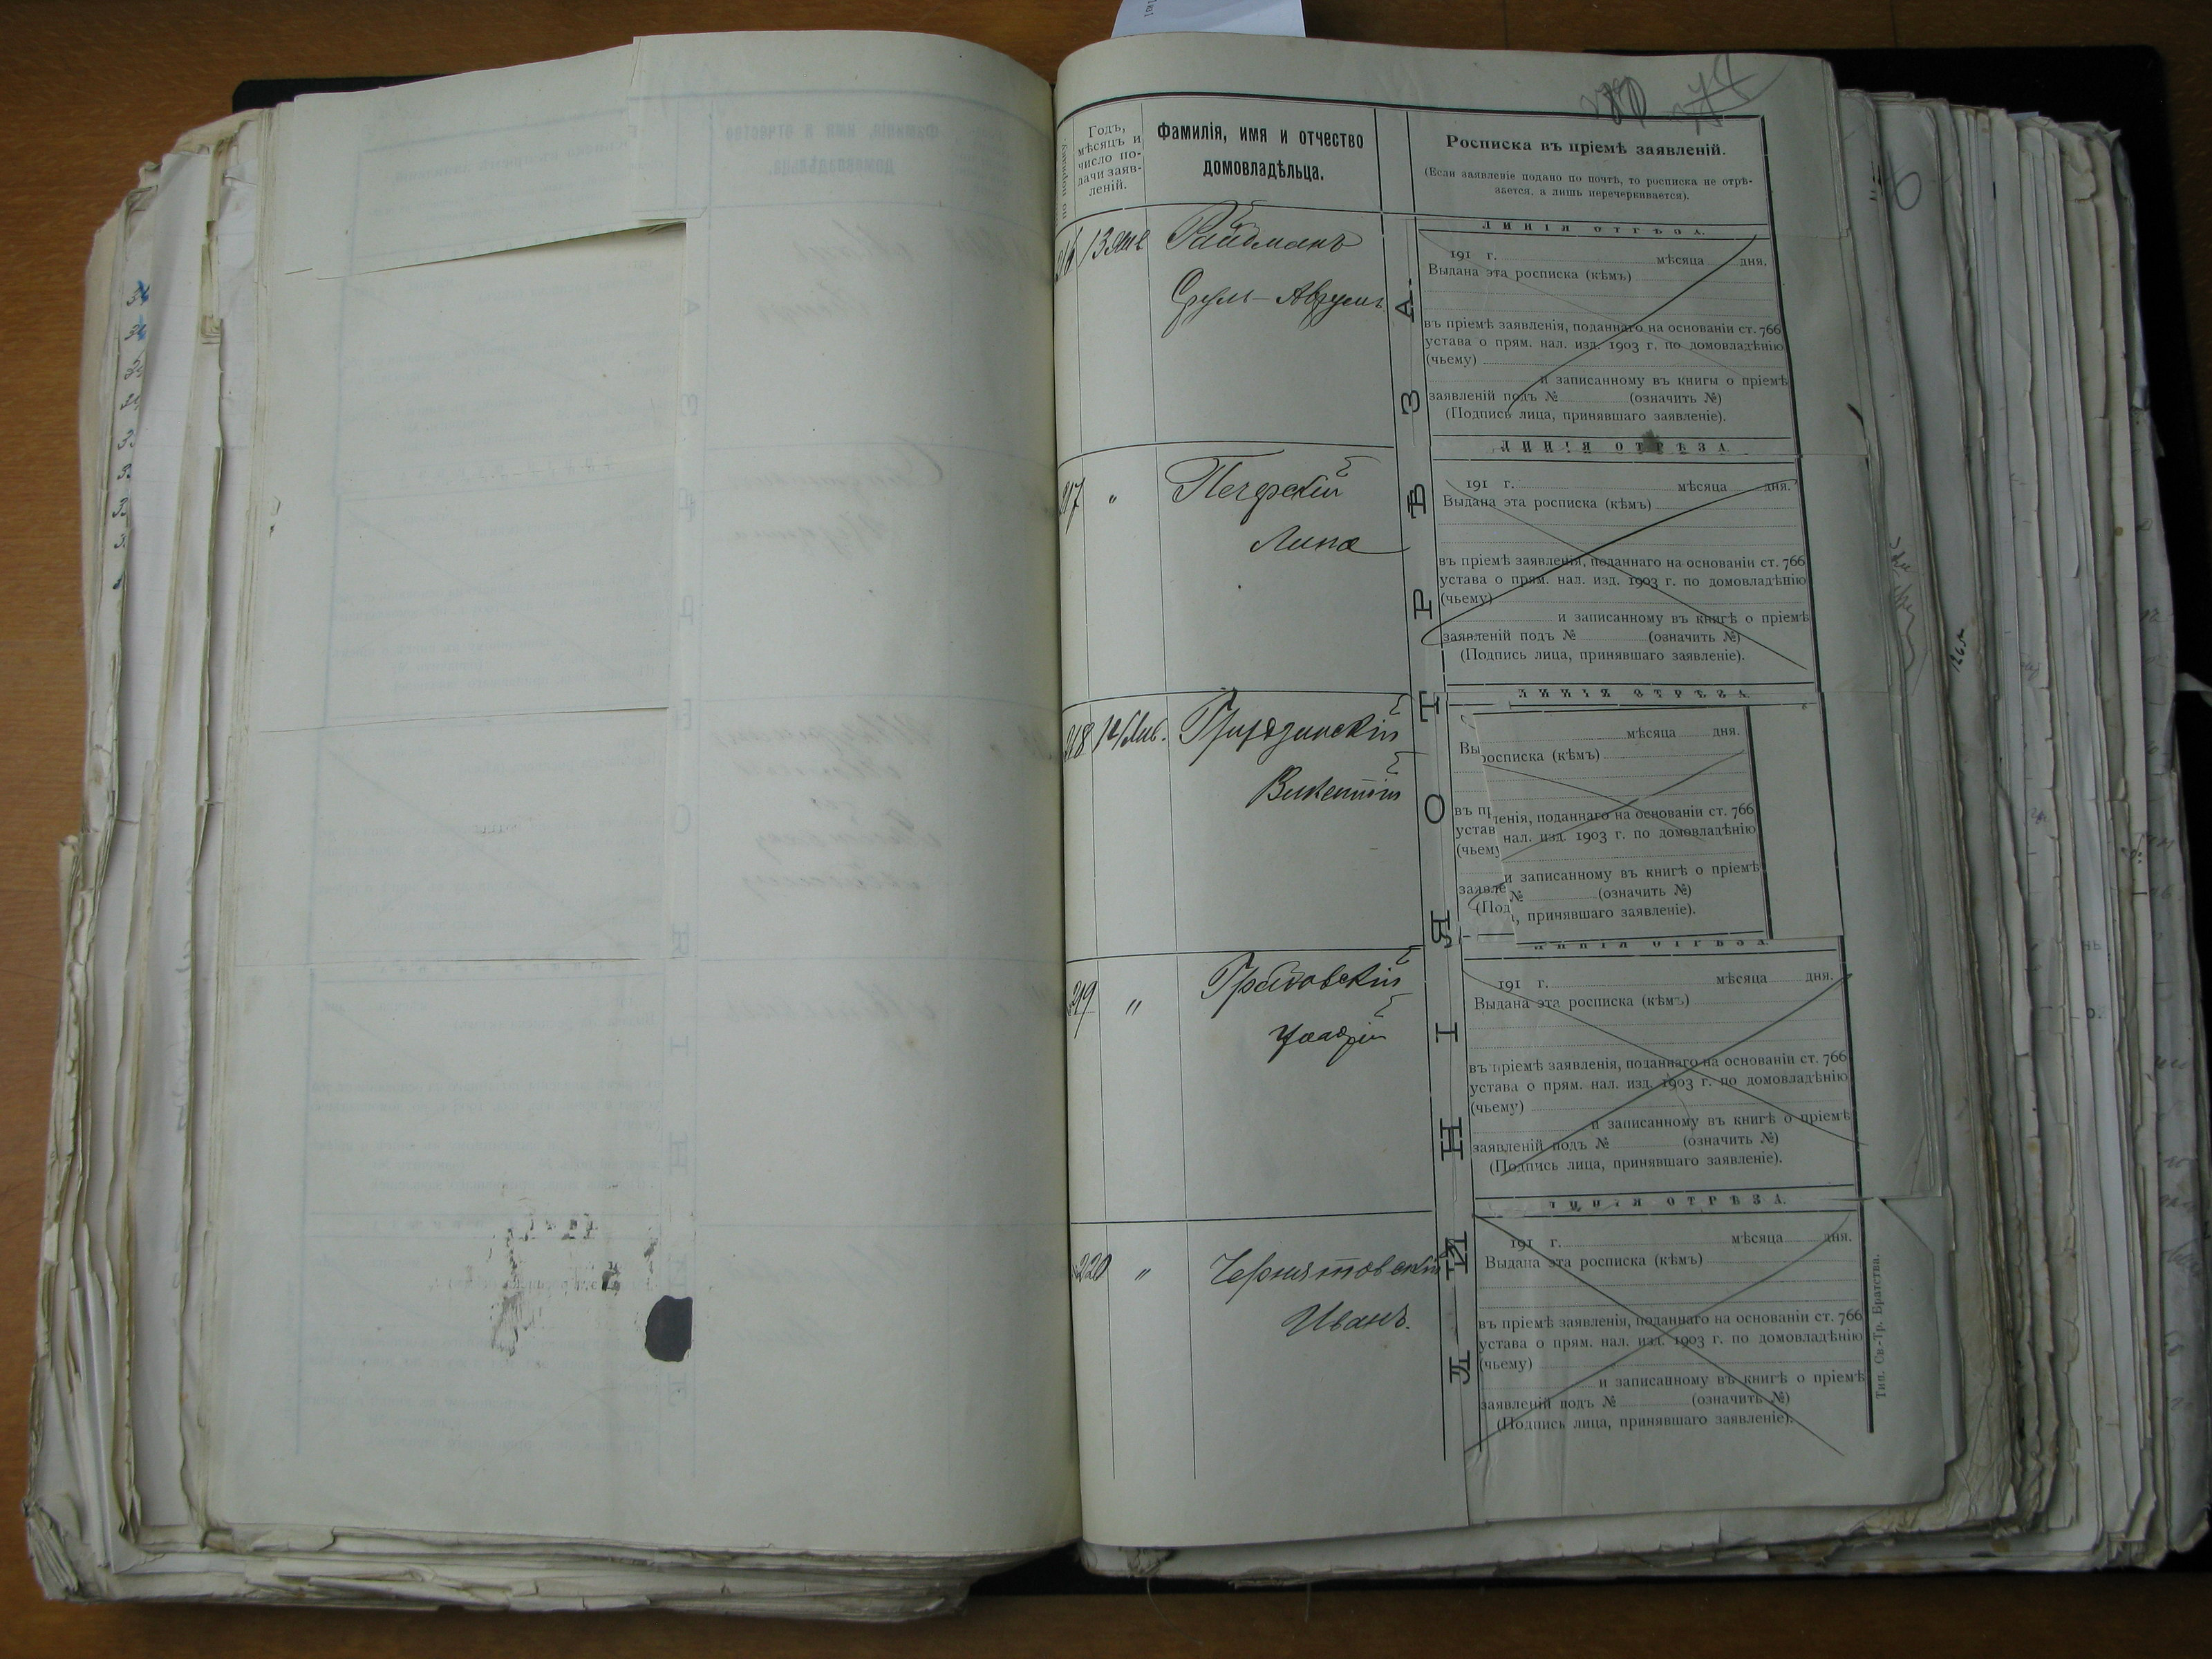 по порядку.
Годъ,
мѣсяцъ и
число по-
дачи заяв-
леній.
Фамилія, имя и отчество
домовладѣльца.
Росписка въ пріемѣ заявленій.
(Если заявленіе подано по почтѣ, то росписка не отрѣ-
зается, а лишь перечеркивается).
ЛИНІЯ ОТРѢЗА.
216 13 Янв
Срул-Аврумъ
191 г. мѣсяца дня.
Выдана эта росписка (кѣмъ)
въ пріемѣ заявленія, поданнаго на основаніи ст. 766
устава о прям. нал. изд. 1903 г. по домовладѣнію
(чьему)
и записанному въ книгы о пріемѣ
заявленій подъ № (означить №)
(Подпись лица, принявшаго заявленіе).
ЛИНІЯ ОТРѢЗА
217 "
191 г. мѣсяца дня.
Выдана эта росписка (кѣмъ)
въ пріемѣ заявленія, поданнаго на основаніи ст. 766
устава о прям. нал. изд. 1903 г. по домовладѣнію
(чьему)
и записанному въ книгѣ о пріемѣ
заявленій подъ № (означить №)
(Подпись лица, принявшаго заявленіе).
ЛИНІЯ ОТРѢЗА.
218 14 Янв.
Викентій
мѣсяца дня.
Вы росписка (кѣмъ)
въ пр ленія, поданнаго на основаніи ст. 766
устав нал. изд. 1903 г. по домовладѣнію
(чьему
и записанному въ книгѣ о пріемѣ
заявле № (означить №)
(Под , принявшаго заявленіе).
ЛИНІЯ ОТРѢЗА
219 "
191 г. мѣсяца дня.
Выдана эта росписка (кѣмъ)
въ пріемѣ заявленія, поданнаго на основаніи ст. 766
устава о прям. нал. изд. 1903 г. по домовладѣнію
(чьему)
и записанному въ книгѣ о пріемѣ
заявленій подъ № (означить №)
(Подпись лица, принявшаго заявленіе).
ЛИНІЯ ОТРѢЗА.
220 " Чернятовскій
Иванъ.
191 г. мѣсяца дня.
Выдана эта росписка (кѣмъ)
въ пріемѣ заявленія, поданнаго на основаніи ст. 766
устава о прям. нал. изд. 1903 г. по домовладѣнію
(чьему)
и записанному въ книгѣ о пріемѣ
заявленій подъ № (означить №)
(Подпись лица, принявшаго заявленіе).
ЛИНІЯ ОТРѢЗА.
Тип. Св.-Тр. Братства.